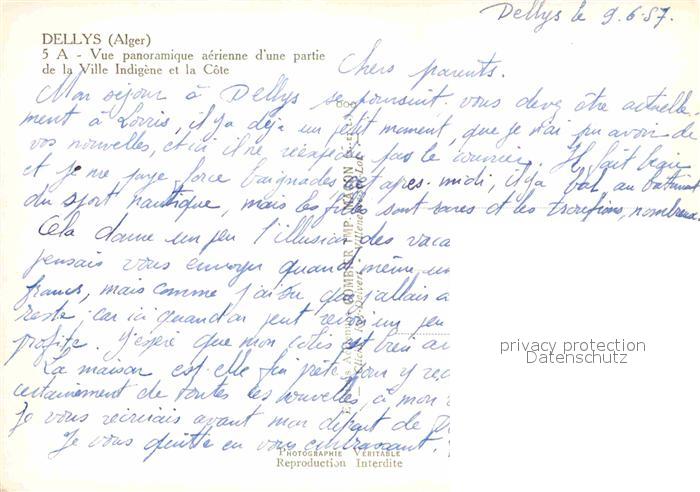 Dellys le 9.6.57.
DELLYS (Alger)
5 A - Vue panoramique aérienne d'une partie
de la Ville Indigène et la Côte
Chers parents.
Mon séjour à Dellys se poursuit. vous devez être actuelle-
ment à Lorris, il y a déjà un petit moment, que je n'ai pu avoir de
vos nouvelles, et ici il ne réexpédie pas le courrier. Il fait beau
et je me paye force baignades et après-midi, il y a bal au batiment
du sport nautique, mais les filles sont rares et les troufions, nombreux.
Cela donne un peu l'illusion des vaca
pensais vous envoyer quand même un
francs, mais comme j'ai su que j'allais a
reste car ici quand on peut un peu
profite. J'espère que mon colis est bien ar
La maison est-elle fin prête pour y
certainement de toutes les nouvelles, à mon
Je vous avant mon départ de
Je vous quitte en vous embrassant.
COMBIER IMP. MACON
PHOTOGRAPHIE VÉRITABLE
Reproduction Interdite
privacy protection
Datenschutz